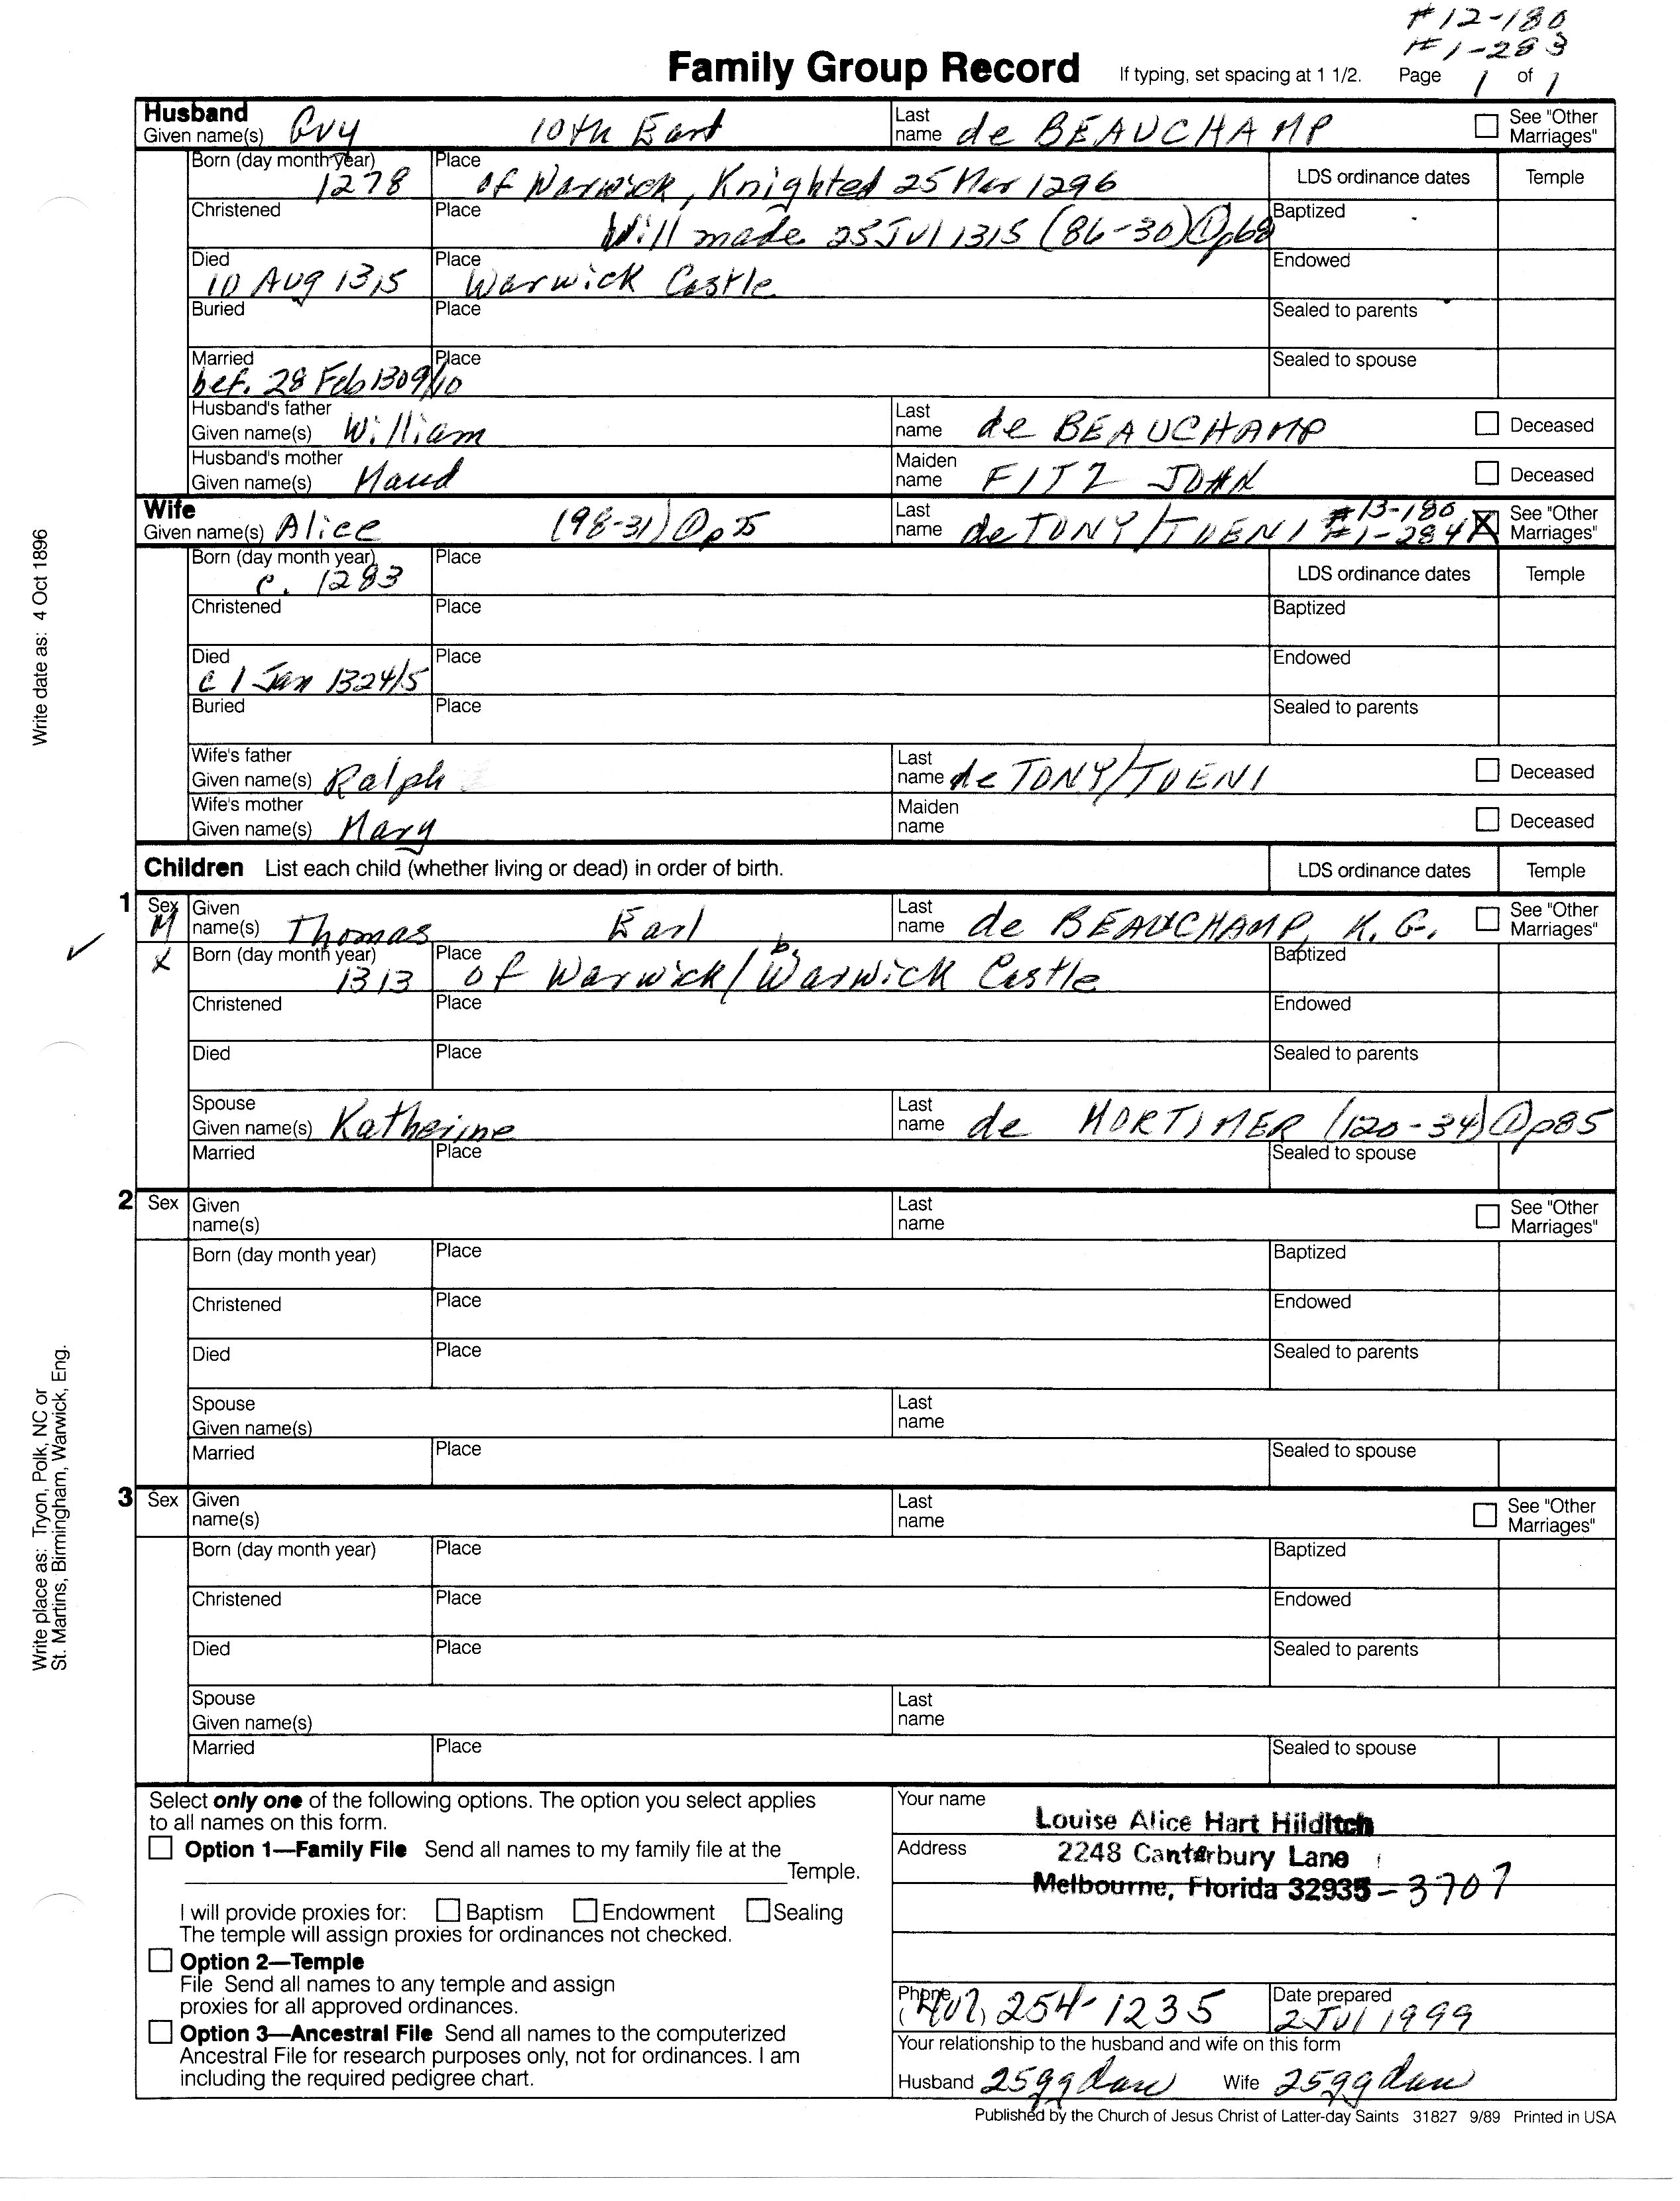 #12-180
#1-283
Family Group Record If typing, set spacing at 1 1/2. Page 1 of 1
Husband
Given name(s) Guy 10th Earl Last name de BEAUCHAMP See "Other Marriages"
Born (day month year) 1278 Place of Warwick, Knighted 25 Mar 1296 LDS ordinance dates Temple
Christened Place Will made 25 Jul 1315 (86-30) p68 Baptized
Died 10 Aug 1315 Place Warwick Castle Endowed
Buried Place Sealed to parents
Married bef. 28 Feb 1309/10 Place Sealed to spouse
Husband's father
Given name(s) William Last name de BEAUCHAMP Deceased
Husband's mother
Given name(s) Maud Maiden name FITZ JOHN Deceased
Wife
Given name(s) Alice (98-31) p75 Last name de TONY/TOENI #13-180 #1-284 X See "Other Marriages"
Born (day month year) c. 1283 Place LDS ordinance dates Temple
Christened Place Baptized
Died c 1 Jan 1324/5 Place Endowed
Buried Place Sealed to parents
Wife's father
Given name(s) Ralph Last name de TONY/TOENI Deceased
Wife's mother
Given name(s) Mary Maiden name Deceased
Children List each child (whether living or dead) in order of birth. LDS ordinance dates Temple
1 Sex M Given name(s) Thomas Earl Last name de BEAUCHAMP, K.G. See "Other Marriages"
X Born (day month year) 1313 Place of Warwick/ b. Warwick Castle Baptized
Christened Place Endowed
Died Place Sealed to parents
Spouse
Given name(s) Katherine Last name de MORTIMER (120-34) p85
Married Place Sealed to spouse
2 Sex Given name(s) Last name See "Other Marriages"
Born (day month year) Place Baptized
Christened Place Endowed
Died Place Sealed to parents
Spouse
Given name(s) Last name
Married Place Sealed to spouse
3 Sex Given name(s) Last name See "Other Marriages"
Born (day month year) Place Baptized
Christened Place Endowed
Died Place Sealed to parents
Spouse
Given name(s) Last name
Married Place Sealed to spouse
Select only one of the following options. The option you select applies
to all names on this form.
Option 1—Family File Send all names to my family file at the
Temple.
I will provide proxies for: Baptism Endowment Sealing
The temple will assign proxies for ordinances not checked.
Option 2—Temple
File Send all names to any temple and assign
proxies for all approved ordinances.
Option 3—Ancestral File Send all names to the computerized
Ancestral File for research purposes only, not for ordinances. I am
including the required pedigree chart.
Your name Louise Alice Hart Hilditch
Address 2248 Canterbury Lane
Melbourne, Florida 32935-3707
Phone (407) 254-1235 Date prepared 2 Jul 1999
Your relationship to the husband and wife on this form
Husband 25ggdau Wife 25ggdau
Published by the Church of Jesus Christ of Latter-day Saints 31827 9/89 Printed in USA
Write date as: 4 Oct 1896
Write place as: Tryon, Polk, NC or
St. Martins, Birmingham, Warwick, Eng.